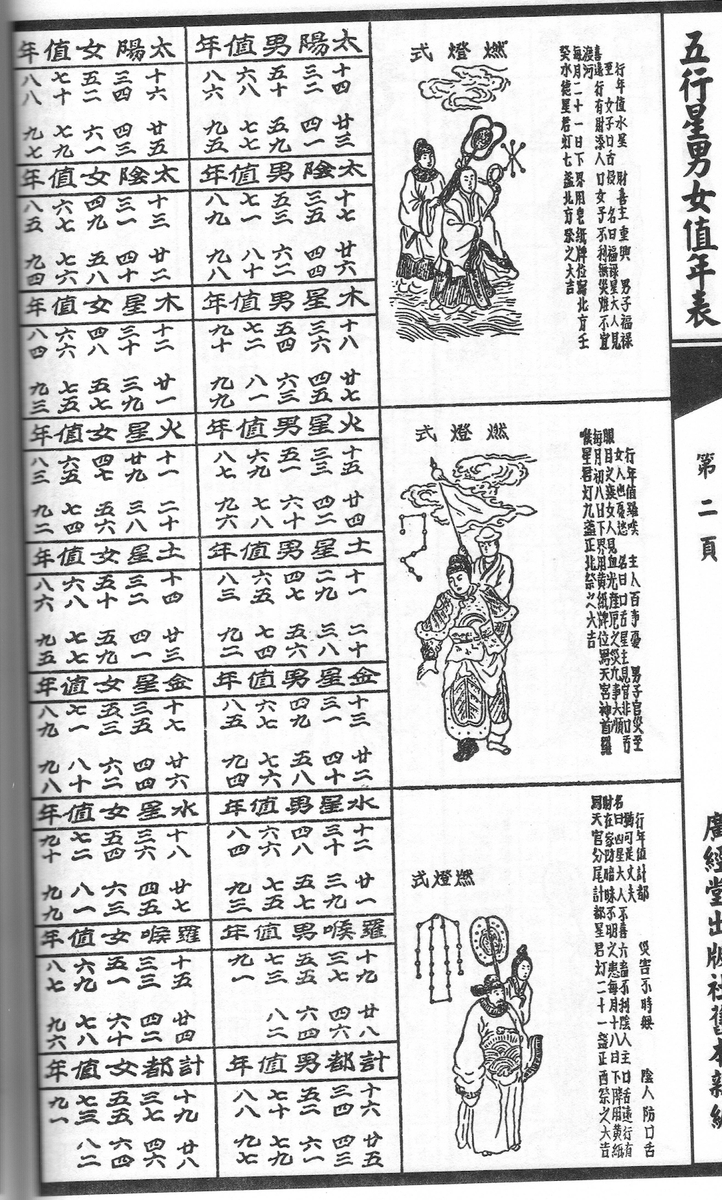 五行星男女值年表
第二頁
廣經堂出版社舊本新編
行年值水星 財喜主重興 男子福祿
至 女子口舌役 名曰福祿星夫人見
喜遠行有財添人口女子不利無災難不宜
渡河
每月二十一日下界用皂紙牌位寫北方壬
癸水德星君灯七盞北方祭之大吉
燃燈式
行年值羅喉 主人百事憂 男子官災至
女人也憂愁 名曰口舌星主見官非口舌
眼目之疾女人見血光產厄之災凡事大順
每月初八日下界用黃紙牌位寫天宮神首羅
喉星君灯九盞正北祭之大吉
燃燈式
行年值計都 災告不時無 陰人防口舌
動可是丈夫
名曰凶星大人不喜六畜不利陰人主口舌遠行有
財在家防暗昧不明之患每月十八日下降用黃紙
寫天宮分尾計都星君灯二十一盞正西祭之大吉
燃燈式
太陽男值年
十四 三二 五十 六八 八六
廿三 四一 五九 七七 九五
太陽女值年
十六 三四 五二 七十 八八
廿五 四三 六一 七九 九七
太陰男值年
十七 三五 五三 七一 八九
廿六 四四 六二 八十 九八
太陰女值年
十三 三一 四九 六七 八五
廿二 四十 五八 七六 九四
木星男值年
十八 三六 五四 七二 九十
廿七 四五 六三 八一 九九
木星女值年
十二 三十 四八 六六 八四
廿一 三九 五七 七五 九三
火星男值年
十五 三三 五一 六九 八七
廿四 四二 六十 七八 九六
火星女值年
十一 廿九 四七 六五 八三
二十 三八 五六 七四 九二
土星男值年
十一 二九 四七 六五 八三
二十 三八 五六 七四 九二
土星女值年
十四 三二 五十 六八 八六
廿三 四一 五九 七七 九五
金星男值年
十三 三一 四九 六七 八五
廿二 四十 五八 七六 九四
金星女值年
十七 三五 五三 七一 八九
廿六 四四 六二 八十 九八
水星男值年
十二 三十 四八 六六 八四
廿一 三九 五七 七五 九三
水星女值年
十八 三六 五四 七二 九十
廿七 四五 六三 八一 九九
羅喉男值年
十九 三七 五五 七三 九一
廿八 四六 六四 八二
羅喉女值年
十五 三三 五一 六九 八七
廿四 四二 六十 七八 九六
計都男值年
十六 三四 五二 七十 八八
廿五 四三 六一 七九 九七
計都女值年
十九 三七 五五 七三 九一
廿八 四六 六四 八二